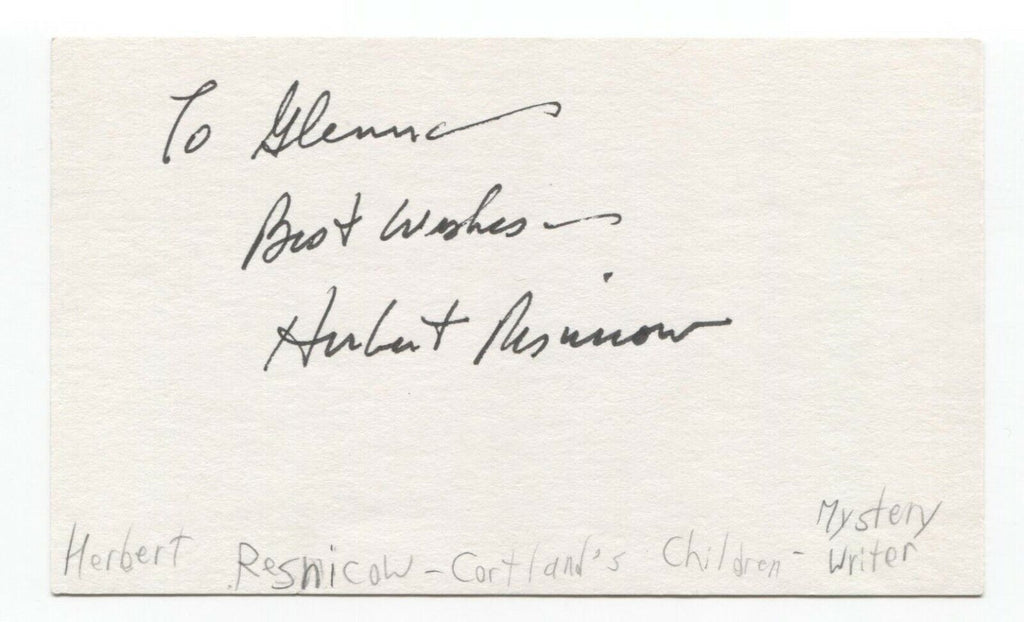 To Glenna
Best Wishes —
Herbert Resnicow
Herbert Resnicow - Cortland's Children - Mystery Writer